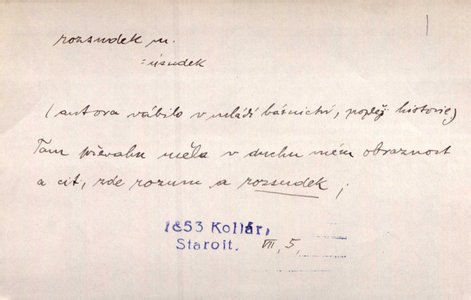 rozsudek m.
= úsudek
(autora vábilo v mládí básnictví, později historie)
Tam převahu měla v duchu mém obraznost
a cit, zde rozum a rozsudek;
1853 Kollár,
Staroit. VII, 5,